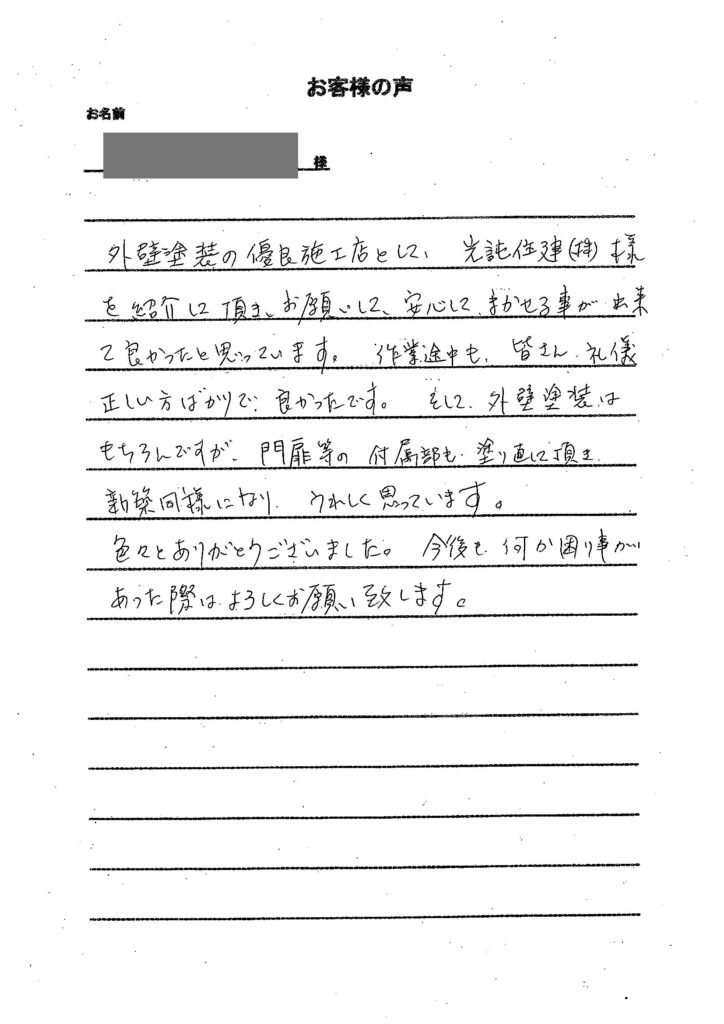 お客様の声
お名前
様
外壁塗装の優良施工店として、光託住建(株)様
を紹介して頂き、お願いして、安心して、まかせる事が出来
て良かったと思っています。 作業途中も、皆さん、礼儀
正しい方ばかりで、良かったです。 そして、外壁塗装は
もちろんですが、門扉等の付属部も、塗り直して頂き、
新築同様になり、うれしく思っています。
色々とありがとうございました。 今後も、何か困り事が
あった際は、よろしくお願い致します。